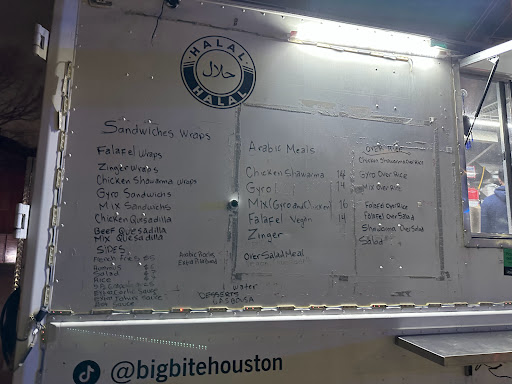 HALAL
حلال
HALAL
Sandwiches Wraps
Falafel Wraps
Zinger Wraps
Chicken Shawarma Wraps
Gyro Sandwichs
Mix Sandwiches
Chicken Quesadilla
Beef Quesadilla
Mix Quesadilla
SIDES
French Fries
Hummus
Salad
Rice
Extra Garlic Sauce
Arabic Meals
Chicken Shawarma 14
Gyro 14
Mix (Gyro and Chicken) 16
Falafel Vegan 14
Zinger
Over Salad Meal
Over Rice
Chicken Shawarma Over Rice
Gyro Over Rice
Mix Over Rice
Falafel Over Rice
Falafel Over Salad
Shawarma Over Salad
Salad
water
DESSERTS
@bigbitehouston